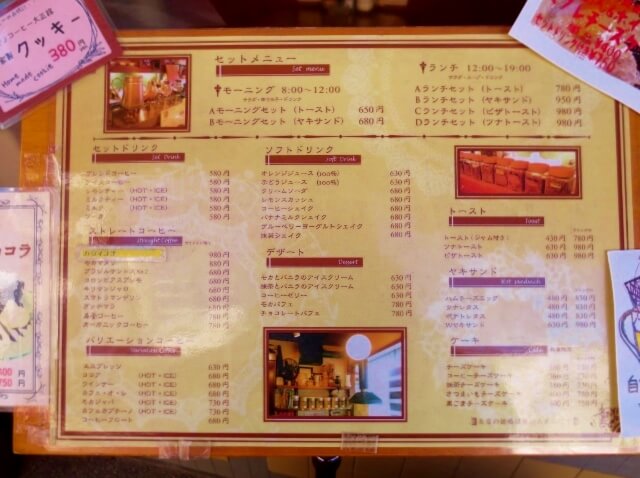 クッキー
380円
Home made cookie
セットメニュー
Set menu
モーニング 8:00～12:00
Aモーニングセット (トースト) 650円
Bモーニングセット (ヤキサンド) 680円
ランチ 12:00～19:00
Aランチセット (トースト) 780円
Bランチセット (ヤキサンド) 950円
Cランチセット (ピザトースト) 980円
Dランチセット (ツナトースト) 980円
セットドリンク
Set Drink
ブレンドコーヒー 580円
アイスコーヒー 580円
レモンティー (HOT・ICE) 580円
ミルクティー (HOT・ICE) 580円
ミルク (HOT・ICE) 580円
コーラ 580円
ストレートコーヒー
Straight Coffee
ハワイコナ 980円
モカマタリ
ブラジルサントスNo.2
コロンビアスプレモ 680円
キリマンジャロ 680円
スマトラマンデリン 680円
グァテマラ
炭焼コーヒー 780円
オーガニックコーヒー 780円
バリエーションコーヒー
Variation Coffee
エスプレッソ 630円
ココア (HOT・ICE) 680円
ウインナー (HOT・ICE) 680円
カフェ・オ・レ (HOT・ICE) 680円
モカジャバ (HOT・ICE) 730円
カフェカプチーノ (HOT・ICE) 730円
コーヒーフロート 680円
ソフトドリンク
Soft Drink
オレンジジュース (100%) 630円
ぶどうジュース (100%) 630円
クリームソーダ 680円
レモンスカッシュ 680円
コーヒーシェイク 680円
バナナミルクシェイク 680円
ブルーベリーヨーグルトシェイク 680円
抹茶シェイク 680円
デザート
Dessert
モカとバニラのアイスクリーム 630円
抹茶とバニラのアイスクリーム 630円
コーヒーゼリー 630円
モカパフェ 780円
チョコレートパフェ 780円
トースト
Toast
トースト (ジャム付き) 430円 780円
ツナトースト 630円 980円
ピザトースト 630円 980円
ヤキサンド
Hot sandwich
ハムチーズエッグ 480円 830円
ツナレタス 480円 830円
ポテトレタス 480円 830円
Wヤキサンド 630円 980円
ケーキ
Cake
チーズケーキ
コーヒーチーズケーキ
抹茶チーズケーキ
さつまいもチーズケーキ
黒ごまチーズケーキ
コラ
400円
750円
自